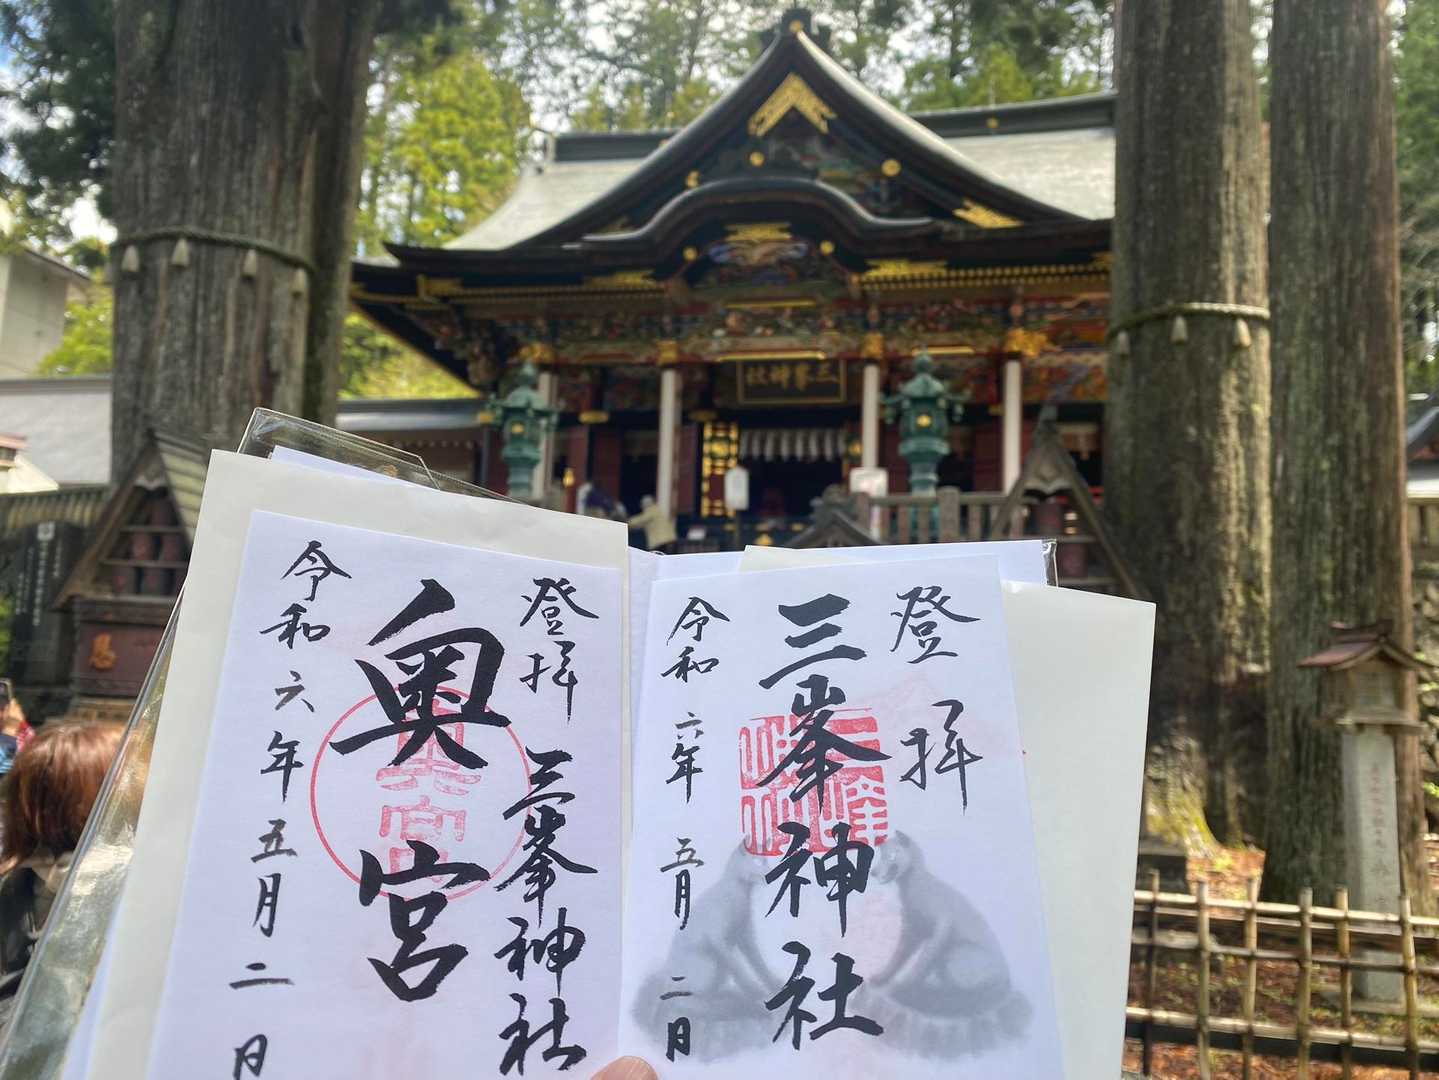 三峯神社
登拝
三峯神社
令和六年五月二日
登拝
三峯神社
奥宮
奥宮
令和六年五月二日